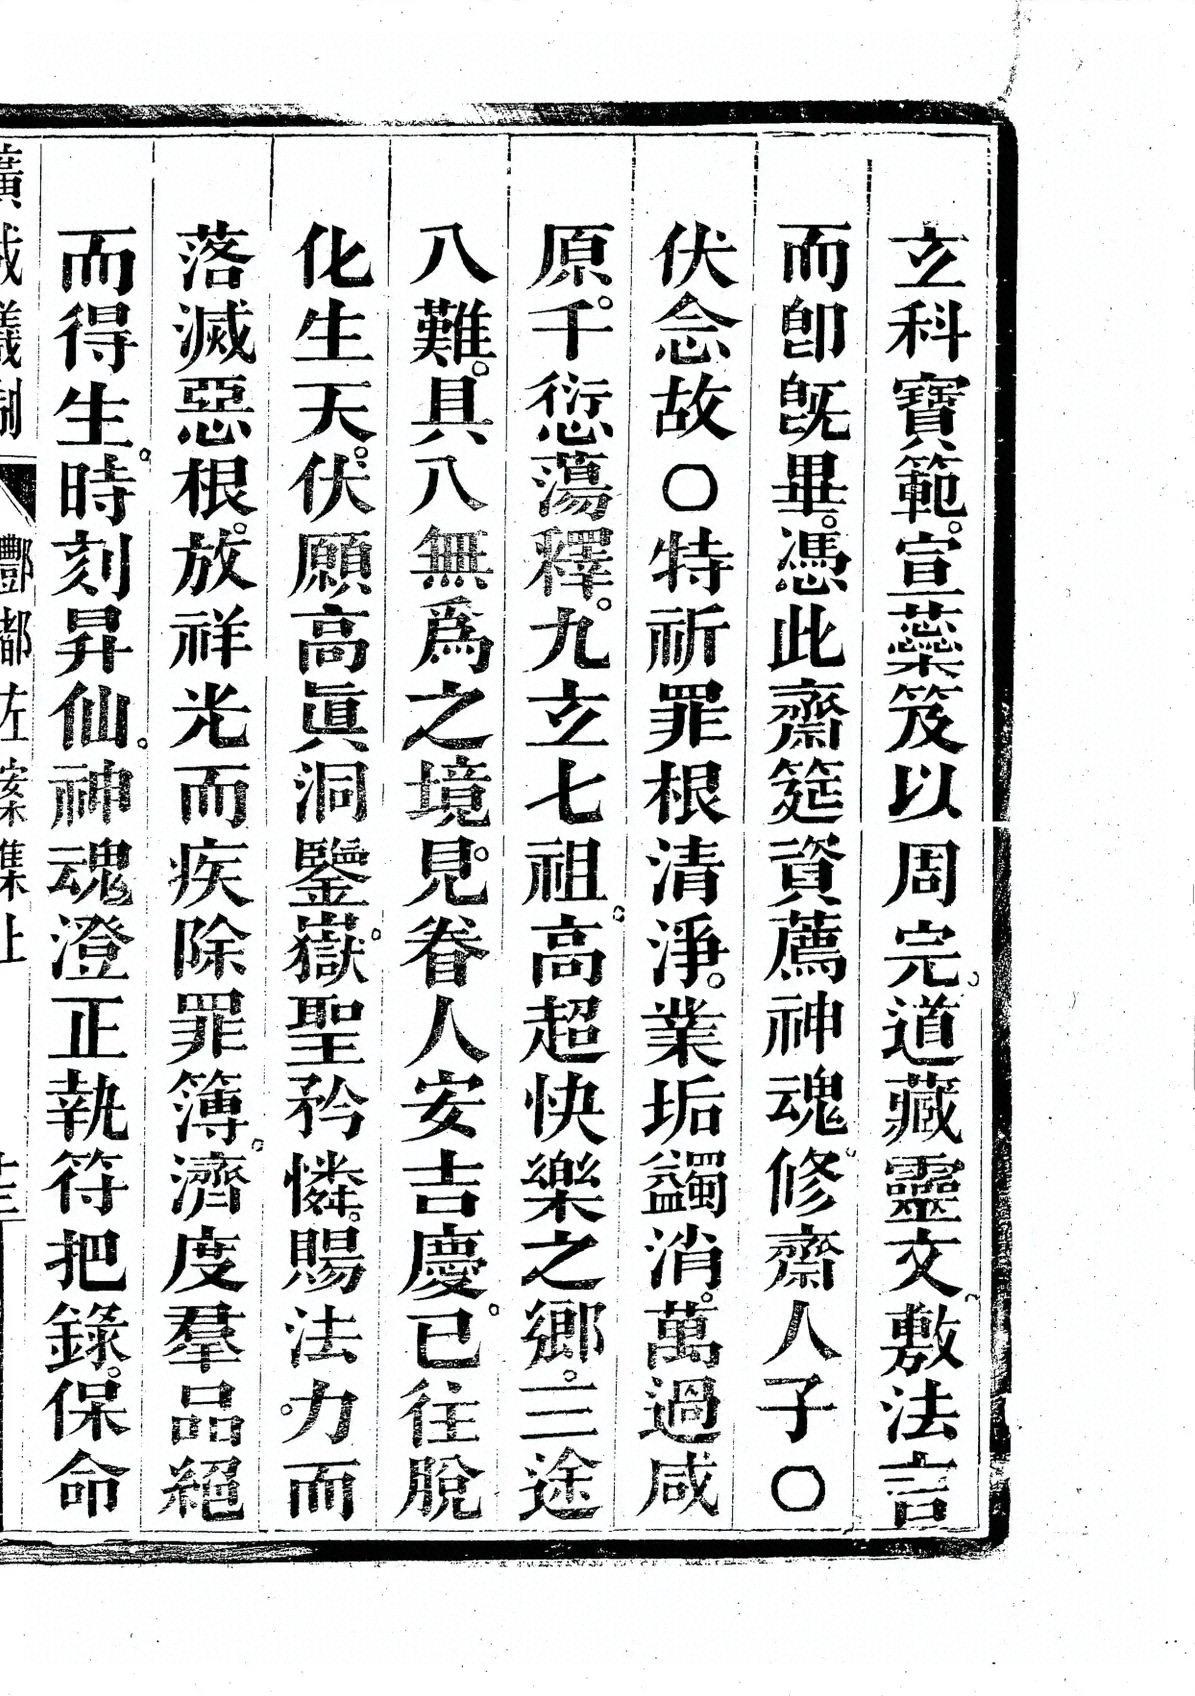 立科寶範。宣蘂笈以周完。道藏靈文敷法言
而卽旣畢。憑此齋筵資薦神魂。修齋人子〇
伏念故〇特祈罪根清淨。業垢蠲消。萬過咸
原。千愆蕩釋。九立七祖。高超快樂之鄉。三途
八難。具八無爲之境。見眷人安吉慶。已往脫
化生天。伏願高眞洞鑒。嶽聖矜憐。賜法力。而
落滅惡根。放祥光而疾除罪簿。濟度羣品。絕
而得生。時刻昇仙。神魂澄正。執符把錄。保命
廣成儀制 酆都佐案集上